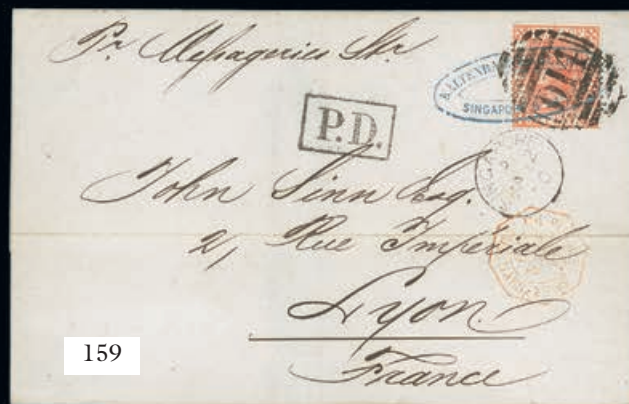 Pr Messageries Str
KALTENBA
SINGAPOR
P.D.
John Sinn Esq.
2, Rue Impériale
Lyon.
France
159